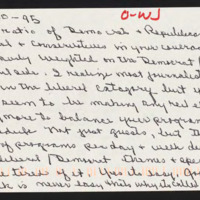 0-95
O-WJ
ratio of Democrat & Republican
al & conservatives in your coverage
weighted on the Democrat
side. I realize most journalists
the liberal category but
seem to be making any real e
more to balance your program
Not just guests, but th
of programs per day & week d
liberal / Democrat themes + spe
tired of it. Yes its easy
is never easy & thats why its called